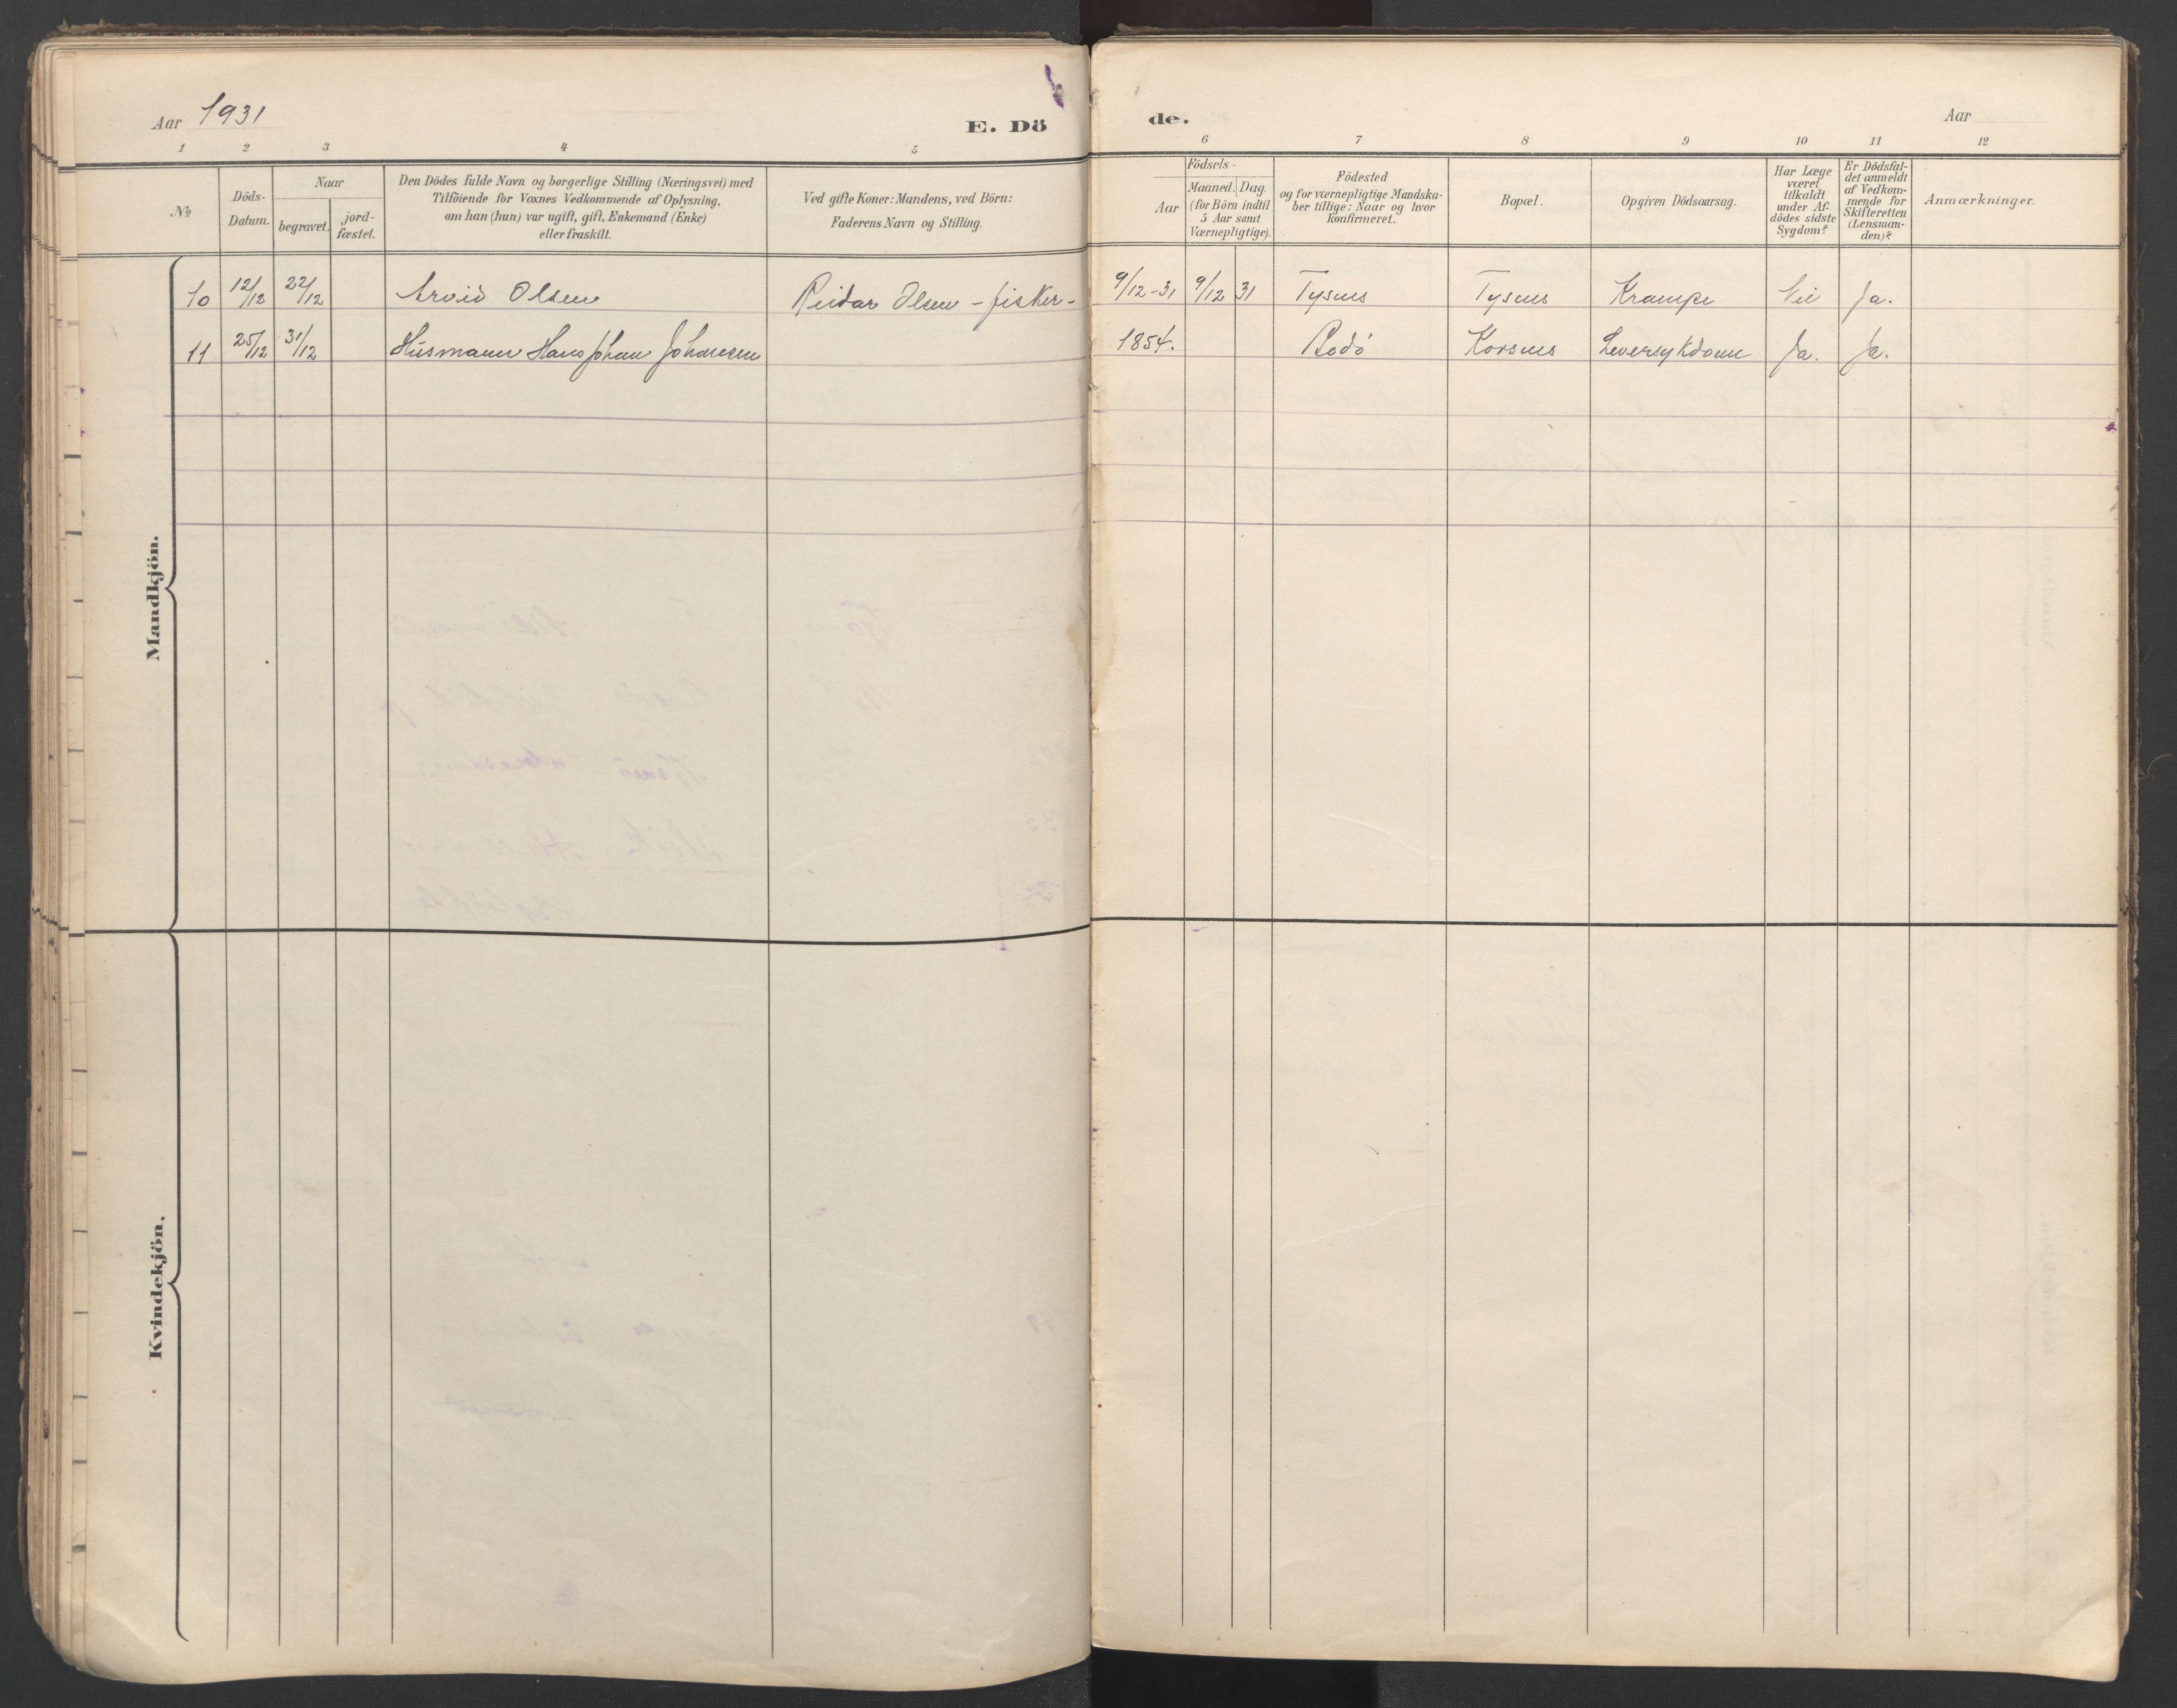 Aar 1931
E. Dö
1 2 3 4 5
№
Döds-
Datum.
Naar
begravet.
jord-
fæstet.
Den Dödes fulde Navn og borgerlige Stilling (Næringsvei) med
Tilföiende for Voxnes Vedkommende af Oplysning,
om han (hun) var ugift, gift, Enkemand (Enke)
eller fraskilt.
Ved gifte Koner: Mandens, ved Börn:
Faderens Navn og Stilling.
10 12/12 22/12 Arvid Olsen Reidar Olsen - fisker -
11 25/12 31/12 Husmann Hans Johan Johansen
Mandkjön.
Kvindekjön.
de.
Aar
6 7 8 9 10 11 12
Födsels-
Aar
Maaned. Dag.
(for Börn indtil
5 Aar samt
Værnepligtige).
Födested
og for værnepligtige Mandska-
ber tillige: Naar og hvor
konfirmeret.
Bopæl.
Opgiven Dödsaarsag.
Har Læge
været
tilkaldt
under Af-
dödes sidste
Sygdom?
Er Dödsfal-
det anmeldt
af Vedkom-
mende for
Skifteretten
(Lensman-
den)?
Anmærkninger.
9/12-31 9/12 31 Tysnes Tysnes Krampe Nei Ja.
1854. Bodö Korsnes Leversykdom Ja. Ja.